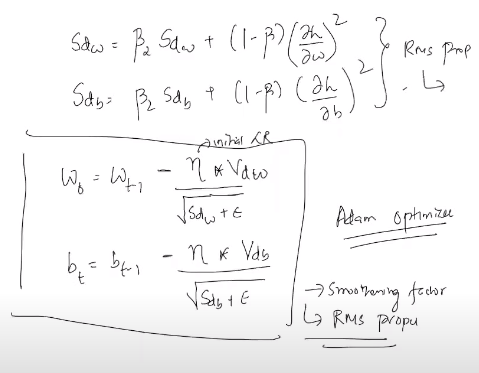 Sdw = β₂ Sdw + (1-β) (∂h/∂w)²
Sdb = β₂ Sdb + (1-β) (∂h/∂b)²
} Rms prop
↳
→ initial LR
Wt = Wt-1 - η * Vdw / √(Sdw + ε)
bt = bt-1 - η * Vdb / √(Sdb + ε)
Adam optimizer
→ Smoothening factor
↳ Rms propu